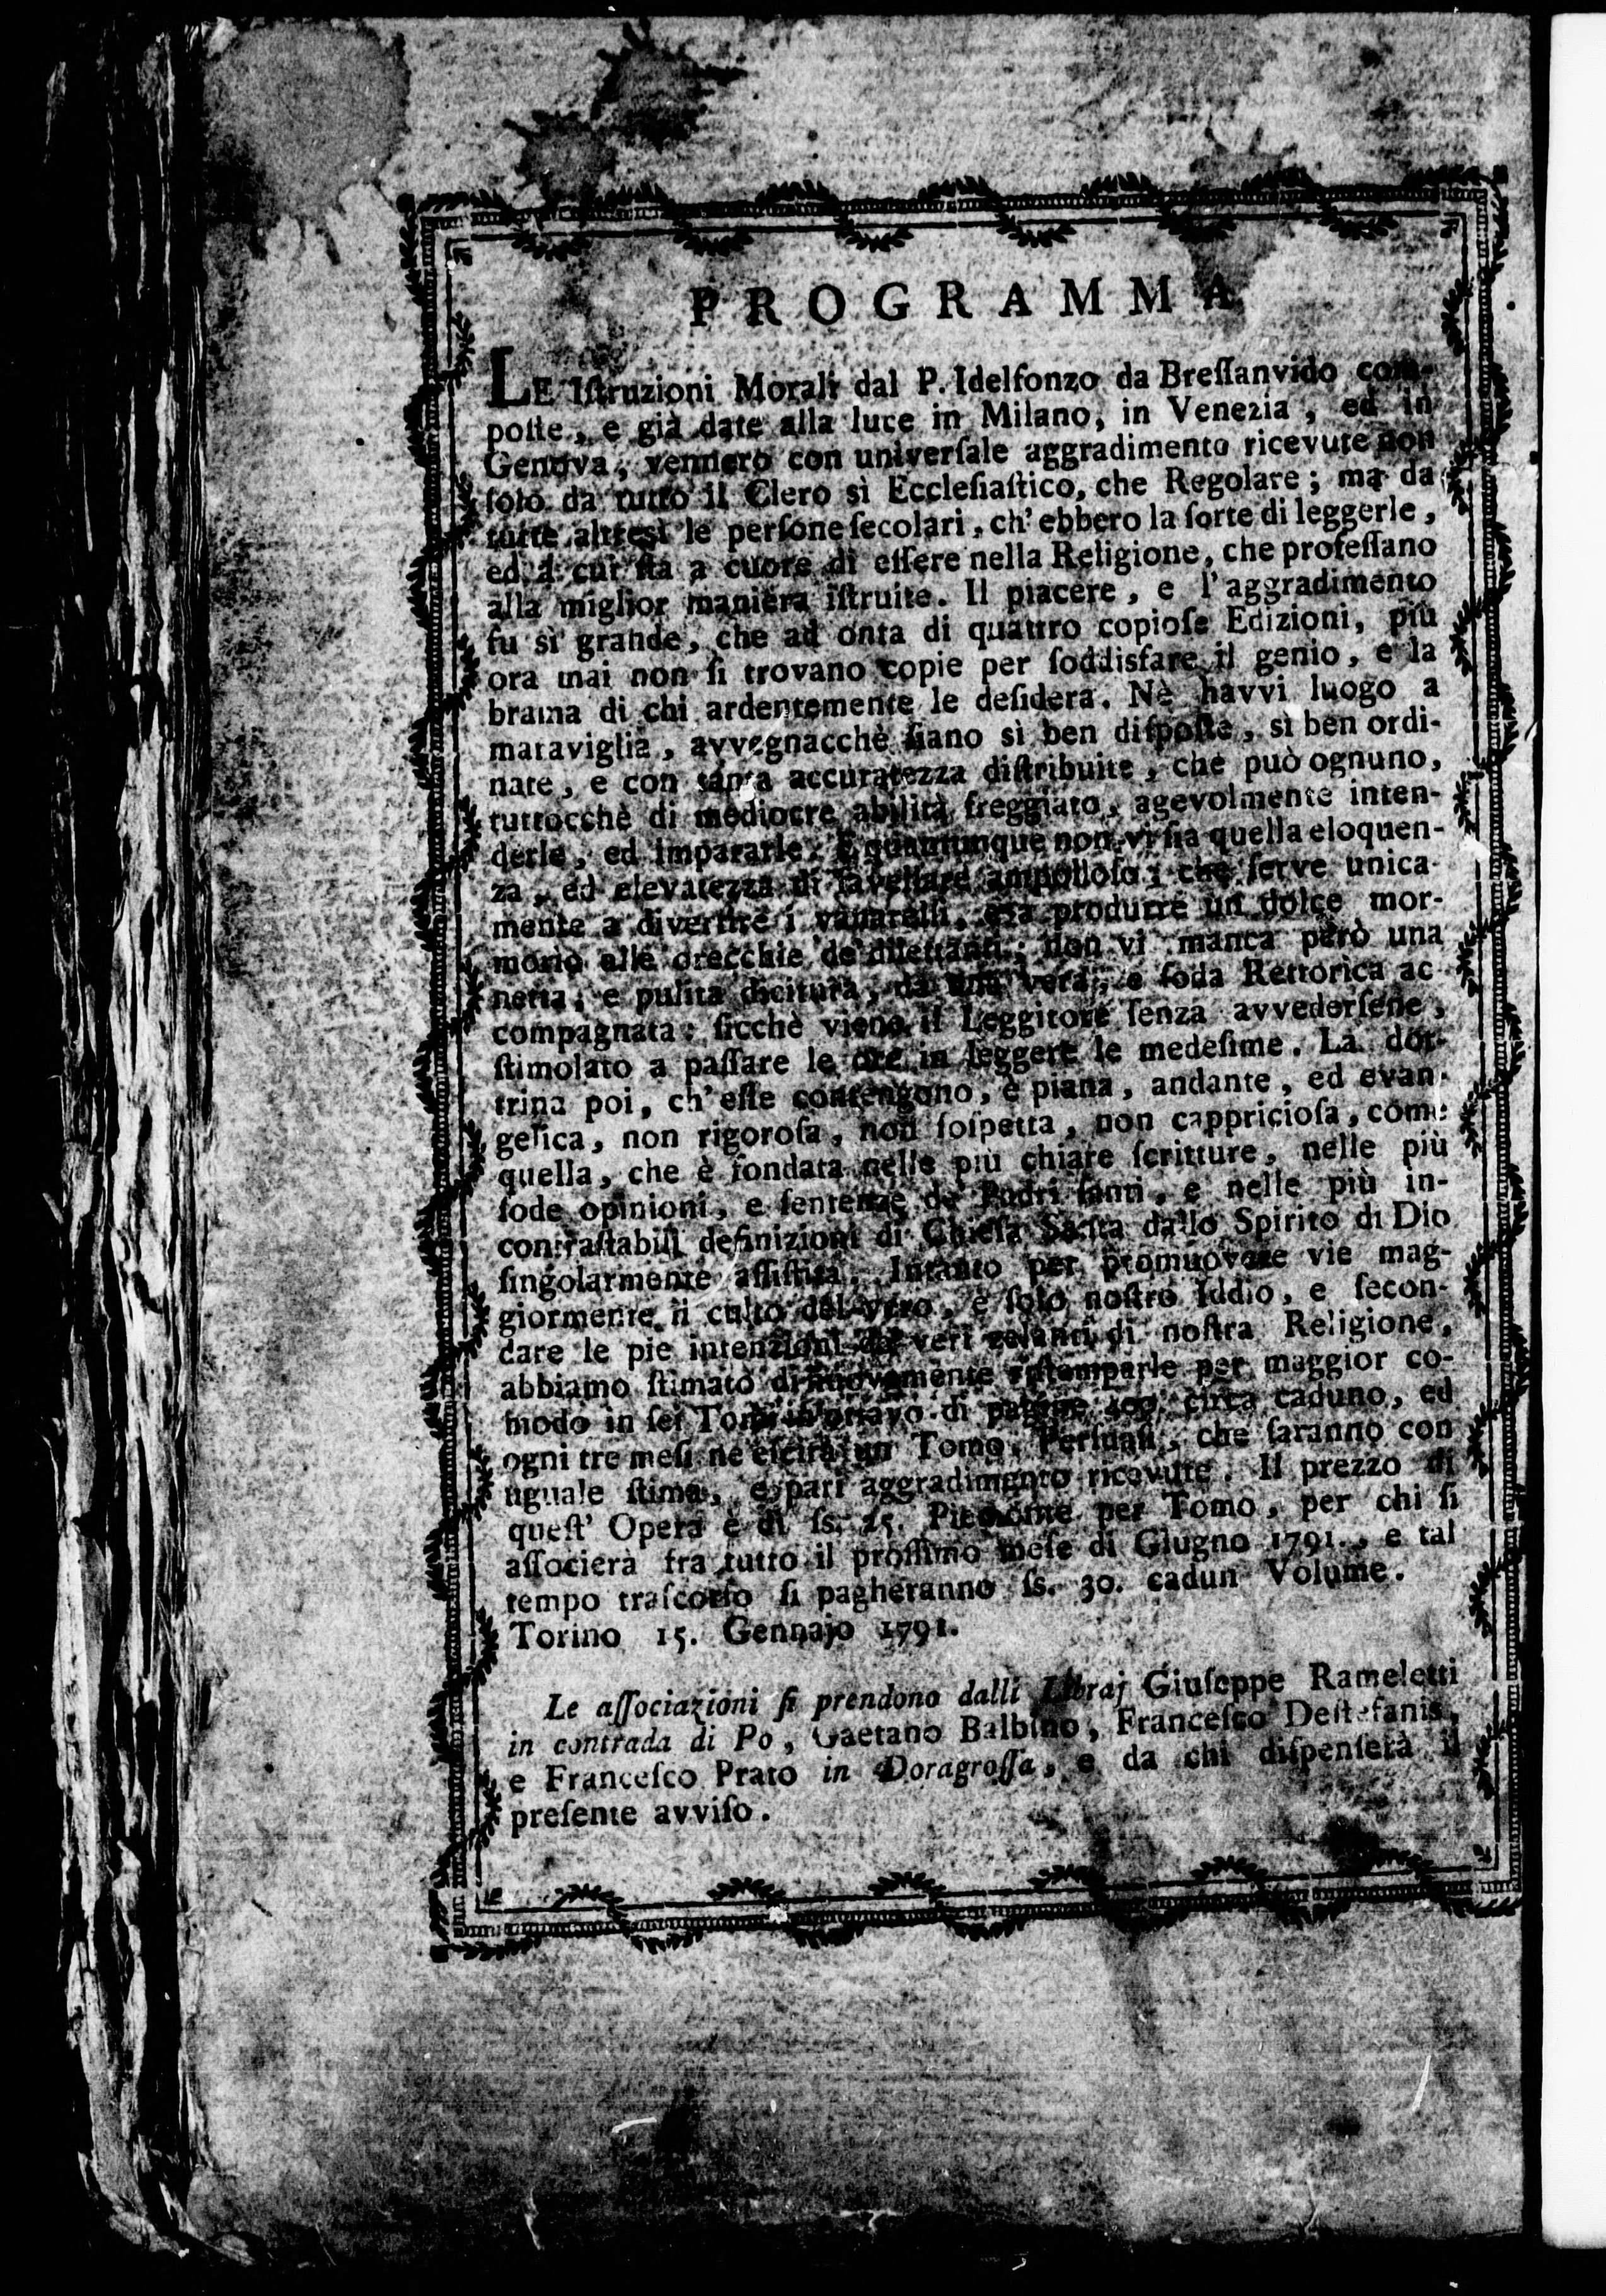 PROGRAMMA
LE Iſtruzioni Morali dal P. Idelfonzo da Breſſanvido com-
poſte, e già date alla luce in Milano, in Venezia, ed in
Genova, vennero con univerſale aggradimento ricevute non
ſolo da tutto il Clero sì Eccleſiaſtico, che Regolare; ma da
tutte altresì le perſone ſecolari, ch' ebbero la ſorte di leggerle,
ed a cui ſta a cuore di eſſere nella Religione, che profeſſano
alla miglior maniera iſtruite. Il piacere, e l'aggradimento
fu sì grande, che ad onta di quattro copioſe Edizioni, più
ora mai non ſi trovano copie per ſoddisfare il genio, e la
brama di chi ardentemente le deſidera. Nè havvi luogo a
maraviglia, avvegnacchè ſiano sì ben diſpoſte, sì ben ordi-
nate, e con tanta accuratezza diſtribuite, che può ognuno,
tuttocchè di mediocre abilità freggiato, agevolmente inten-
derle, ed impararle. E quantunque non vi ſia quella eloquen-
za, ed elevatezza di favellare ampolloſo, che ſerve unica-
mente a divertire i vanarelli, e a produrre un dolce mor-
morio alle orecchie de' dilettanti; non vi manca però una
netta, e pulita dicitura, da una vera, e ſoda Rettorica ac-
compagnata: ſicchè viene il Leggitore ſenza avvederſene,
ſtimolato a paſſare le ore in leggere le medeſime. La dot-
trina poi, ch' eſſe contengono, è piana, andante, ed evan-
gelica, non rigoroſa, non ſoſpetta, non cappriccioſa, come
quella, che è fondata nelle più chiare ſcritture, nelle più
ſode opinioni, e ſentenze de' Padri ſanti, e nelle più in-
contraſtabili definizioni di Chieſa Santa dallo Spirito di Dio
ſingolarmente aſſiſtita. Intanto per promuovere vie mag-
giormente il culto del vero, e ſolo noſtro Iddio, e ſecon-
dare le pie intenzioni de' veri zelanti di noſtra Religione,
abbiamo ſtimato di nuovamente riſtamparle per maggior co-
modo in ſei Tomi in ottavo di pagine 400. circa caduno, ed
ogni tre meſi ne eſcirà un Tomo. Perſuaſi, che ſaranno con
uguale ſtima, e pari aggradimento ricevute. Il prezzo di
queſt' Opera è di ſs. 25. Piemonte per Tomo, per chi ſi
aſſocierà fra tutto il proſſimo meſe di Giugno 1791., e tal
tempo traſcorſo ſi pagheranno ſs. 30. cadun Volume.
Torino 15. Gennajo 1791.
Le aſſociazioni ſi prendono dalli Libraj Giuſeppe Rameletti
in contrada di Po, Gaetano Balbino, Franceſco Deſtefanis,
e Franceſco Prato in Doragroſſa, e da chi diſpenſerà il
preſente avviſo.